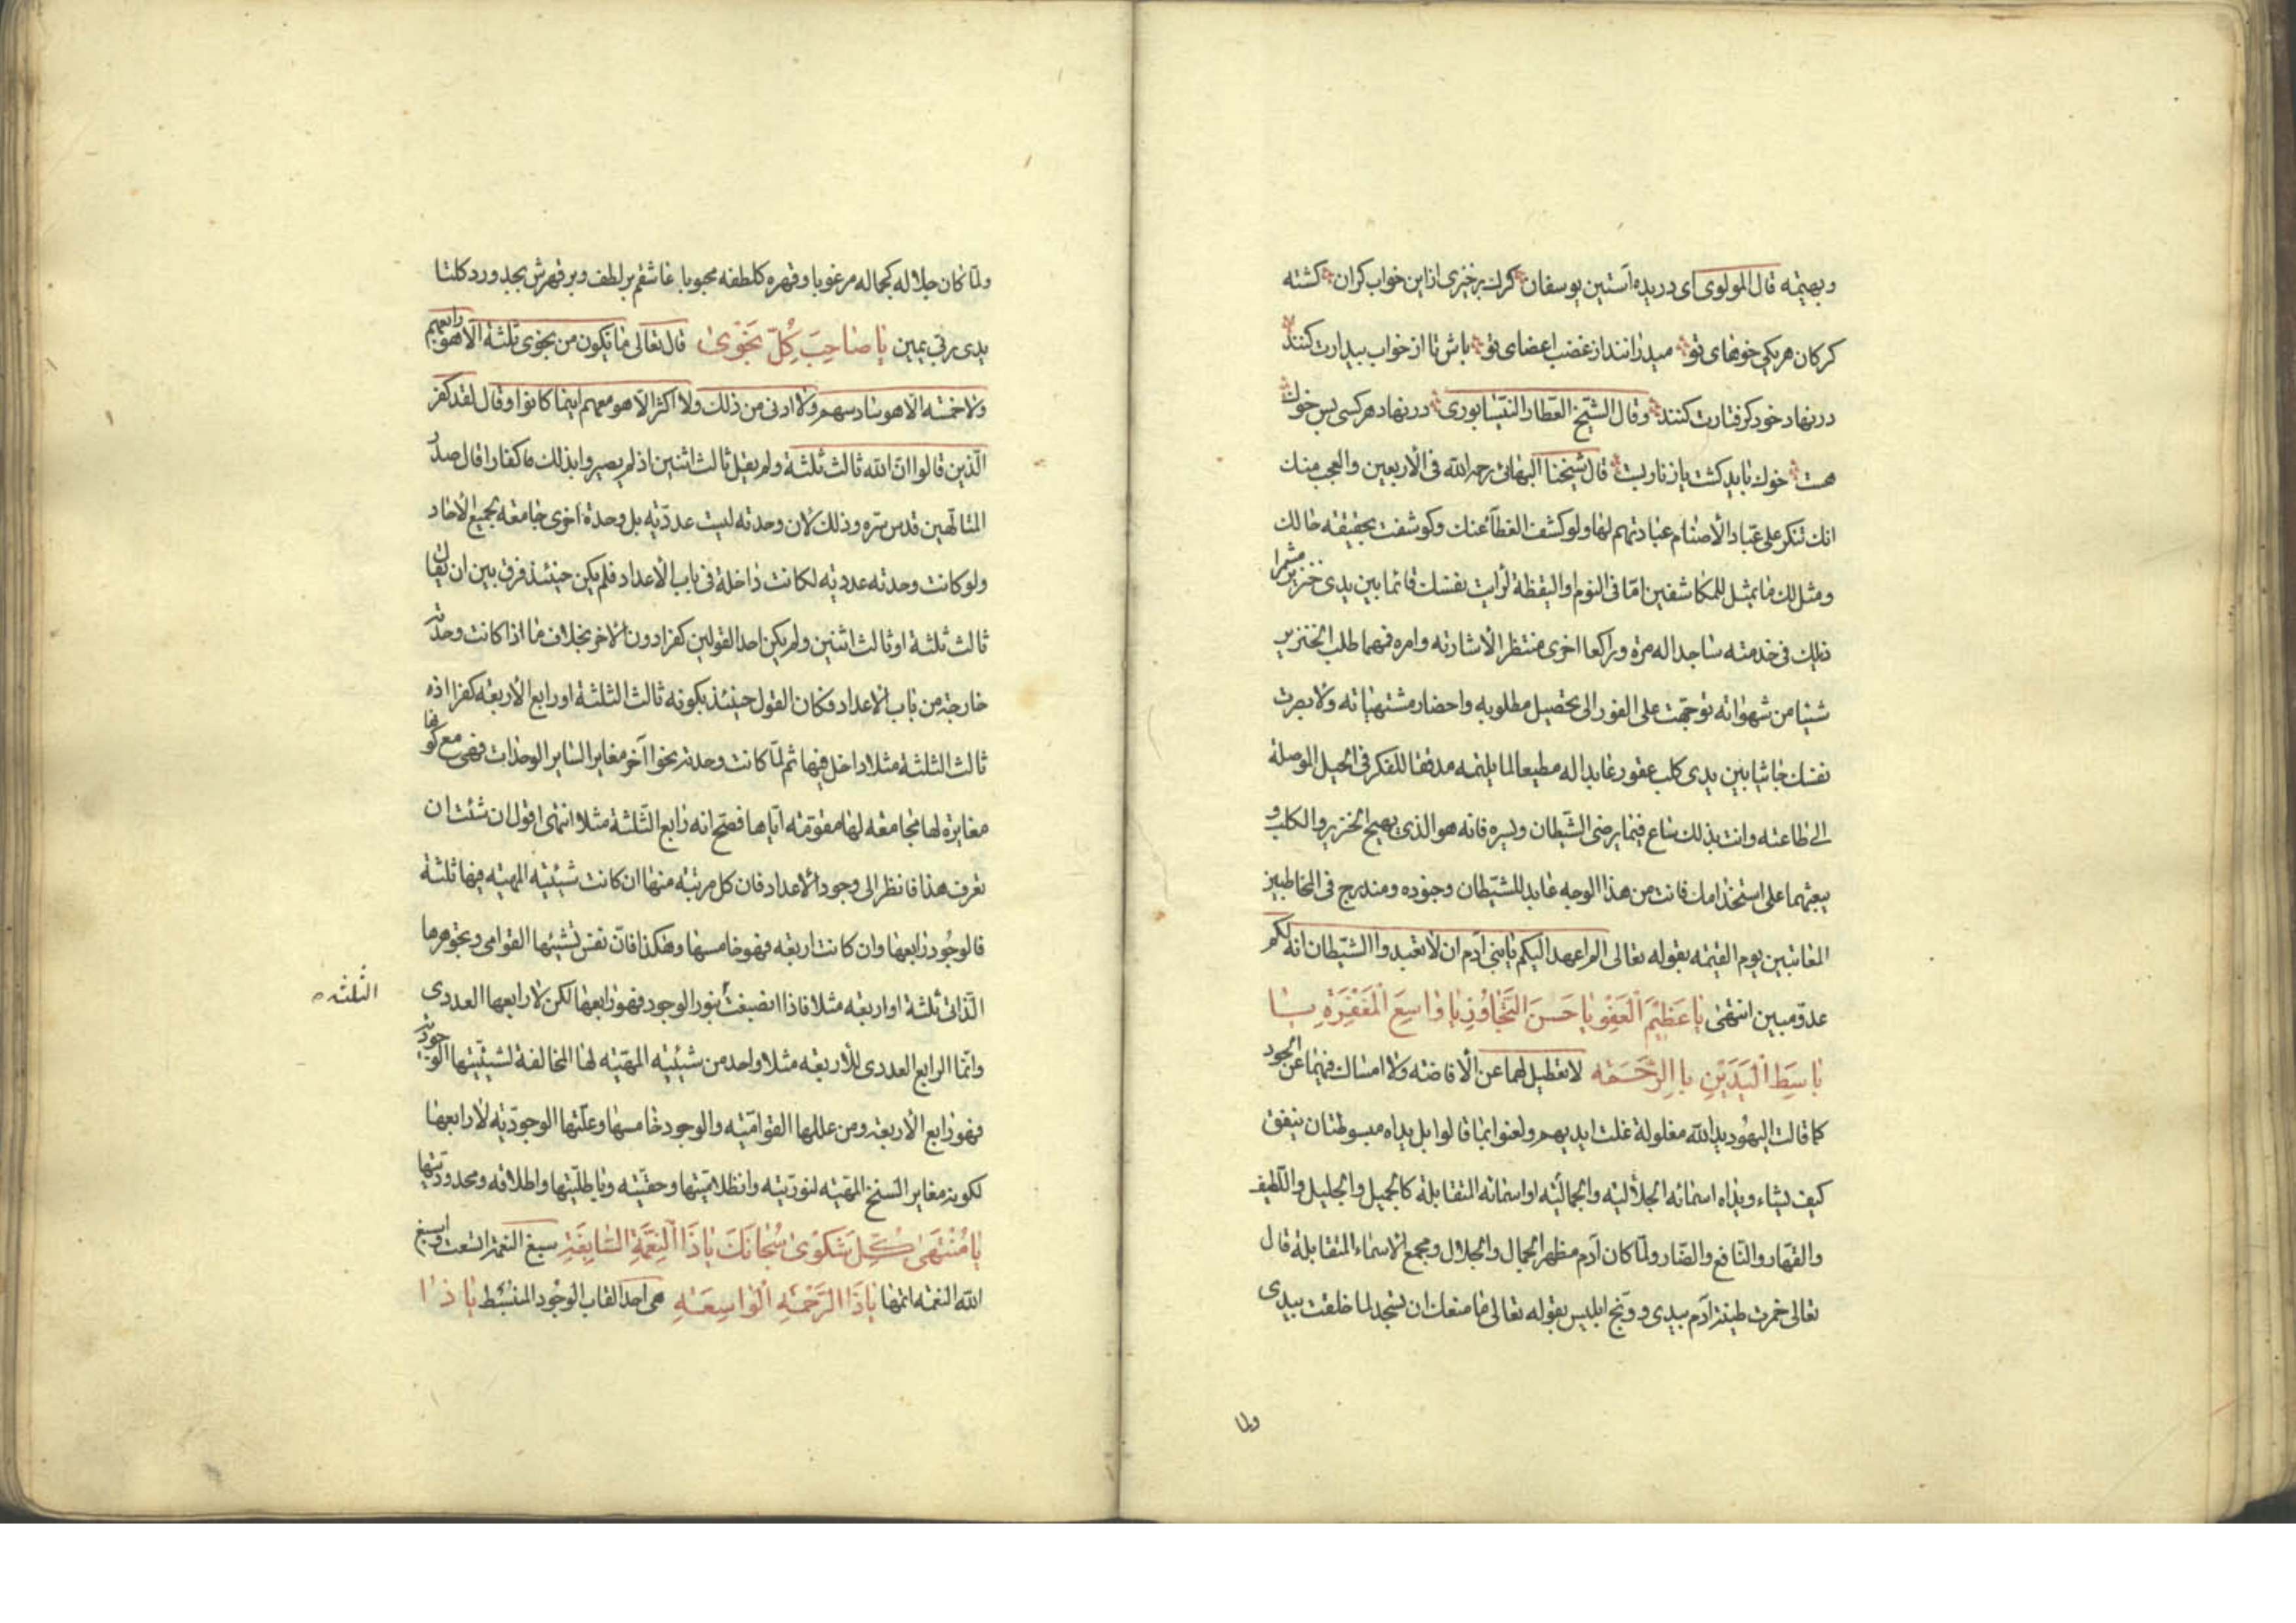 وبهیمته قال المولوی ای دریده آستین یوسفان کرك برخیزی ازاین خواب کران کشته
کرکان هریکی خوهای تو میدرانند از غضب اعضای تو باش تا از خواب بیدارت کنند
در نهاد خود کرفتارت کنند وقال الشیخ العطار النیسابوری در نهاد هرکسی بس خوك
هست خوك باید کشت یا زنار بست قال شیخنا البهائی رحمه الله فی الأربعین والعجب منك
انك تنکر علی عباد الأصنام عبادتهم لها ولو کشف الغطآء عنك وکوشفت بحقیقه حالك
ومثل لك ما یمثل للمکاشفین امّا فی النوم او الیقظة لرأیت نفسك قائما بین یدی خنزیر مشمرا
ذیلك فی خدمته ساجدا له مرة وراکعا اخری منتظرا لأشارته وامره فمهما طلب الخنزیر
شیئا من شهواته توجّهت علی الفور الی تحصیل مطلوبه واحضار مشتهیاته ولابصرت
نفسك جاثیا بین یدی کلب عقور عابدا له مطیعا لما یلتمسه مدققا للفکر فی الحیل الموصلة
الی طاعته وانت بذلك ساع فیما یرضی الشّیطان ویسره فانه هو الذی یهیج الخنزیر والکلب و
یبعثهما علی استخدامك فانت من هذا الوجه عابد للشّیطان وجنوده ومندرج فی المخاطبین
المعاتبین یوم القیمة بقوله تعالی الم اعهد الیکم یا بنی آدم ان لا تعبدوا الشّیطان انه لکم
عدوّ مبین انتهی یا عَظیمَ الْعَفْوِ یا حَسَنَ التَّجاوُزِ یا واسِعَ الْمَغْفِرَةِ یا
باسِطَ الْیَدَیْنِ بِالرَّحْمَه لا تعطیل لهما عن الأفاضه ولا امساك فیهما عن الجود
کما قالت الیهُود ید الله مغلولة غلت ایدیهم ولعنوا بما قالوا بل یداه مبسوطتان ینفق
کیف یشاء ویداه اسمائه الجلالیه والجمالیّه او اسمائه المتقابلة کالجمیل والجلیل واللّطیف
والقهّار والنّافع والضّار ولمّا کان آدم مظهر الجمال والجلال ومجمع الاسماء المتقابلة قال
تعالی خمرت طینة آدم بیدی ووبّخ ابلیس بقوله تعالی ما منعك ان تسجد لما خلقت بیدی
ولما
ولمّا کان جلاله کجماله مرغوبا وقهره کلطفه محبوبا عاشقم بر لطف و بر قهرش بجد ورد کلتا
یدی ربّی یمین یا صاحِبَ کُلِّ نَجْوی قال تعالی ما یکون من نجوی ثلثة الّا هو رابعهم
ولا خمسه الّا هو سادسهم ولا ادنی من ذلك ولا اکثر الّا هو معهم اینما کانوا وقال لقد کفر
الّذین قالوا انّ الله ثالث ثلثة ولم یقل ثالث اثنین اذ لم یصیروا بذلك کفارا قال صدر
المتألّهین قدس سرّه وذلك لان وحدته لیست عددیّه بل وحدة اخری جامعة لجمیع الآحاد
ولو کانت وحدته عددیّه لکانت داخلة فی باب الأعداد فلم یکن حینئذ فرق بین ان یقال
ثالث ثلثة او ثالث اثنین ولم یکن احد القولین کفرا دون الآخر بخلاف ما اذا کانت وحدته
خارجة من باب الاعداد فکان القول حینئذ بکونه ثالث الثلثة او رابع الأربعه کفرا اذ
ثالث الثلثة مثلا داخل فیها ثم لمّا کانت وحدته نحوا آخر مغایرا لسایر الوحدات فهی مع کونها
مغایرة لها مجامعه لها مقوّمة ایّاها فصحّ انه رابع الثّلثة مثلا انتهی اقول ان شئت ان
تعرف هذا فانظر الی وجود الاعداد فان کل مرتبه منها ان کانت شیئیّه المهیّه فیها ثلثة
فالوجُود رابعها وان کانت اربعه فهو خامسها وهکذا فانّ نفس تشیئها القوامی وتجوهرها
الذّاتی ثلثة او اربعه مثلا فاذا انضبغت بنور الوجود فهو رابعها لکن لا رابعها العددی
الثلثه
وانّما الرابع العددی للأربعه مثلا واحد من شیئیّه المهیّه لها المخالفة لشیئیّتها الوجودیّة
فهو رابع الأربعة ومن عللها القوامیّه والوجود خامسها وعلّتها الوجودیّه لا رابعها
لکونه مغایر السنخ المهیّه لنوریّته واظلامیّتها وحقیّته وباطلیّتها واطلاقه ومحدودیّتها
یا مُنْتَهی کُلِّ شَکْوی سُبْحانَكَ یا ذَا الْنِعْمَةِ السّابِغَةِ سبغ النعمة اتسعت واسبغ
الله النعمة اتمّها یا ذَا الرَّحْمَةِ الْواسِعَهِ هی احد القاب الوجُود المنبسط یا ذا ا